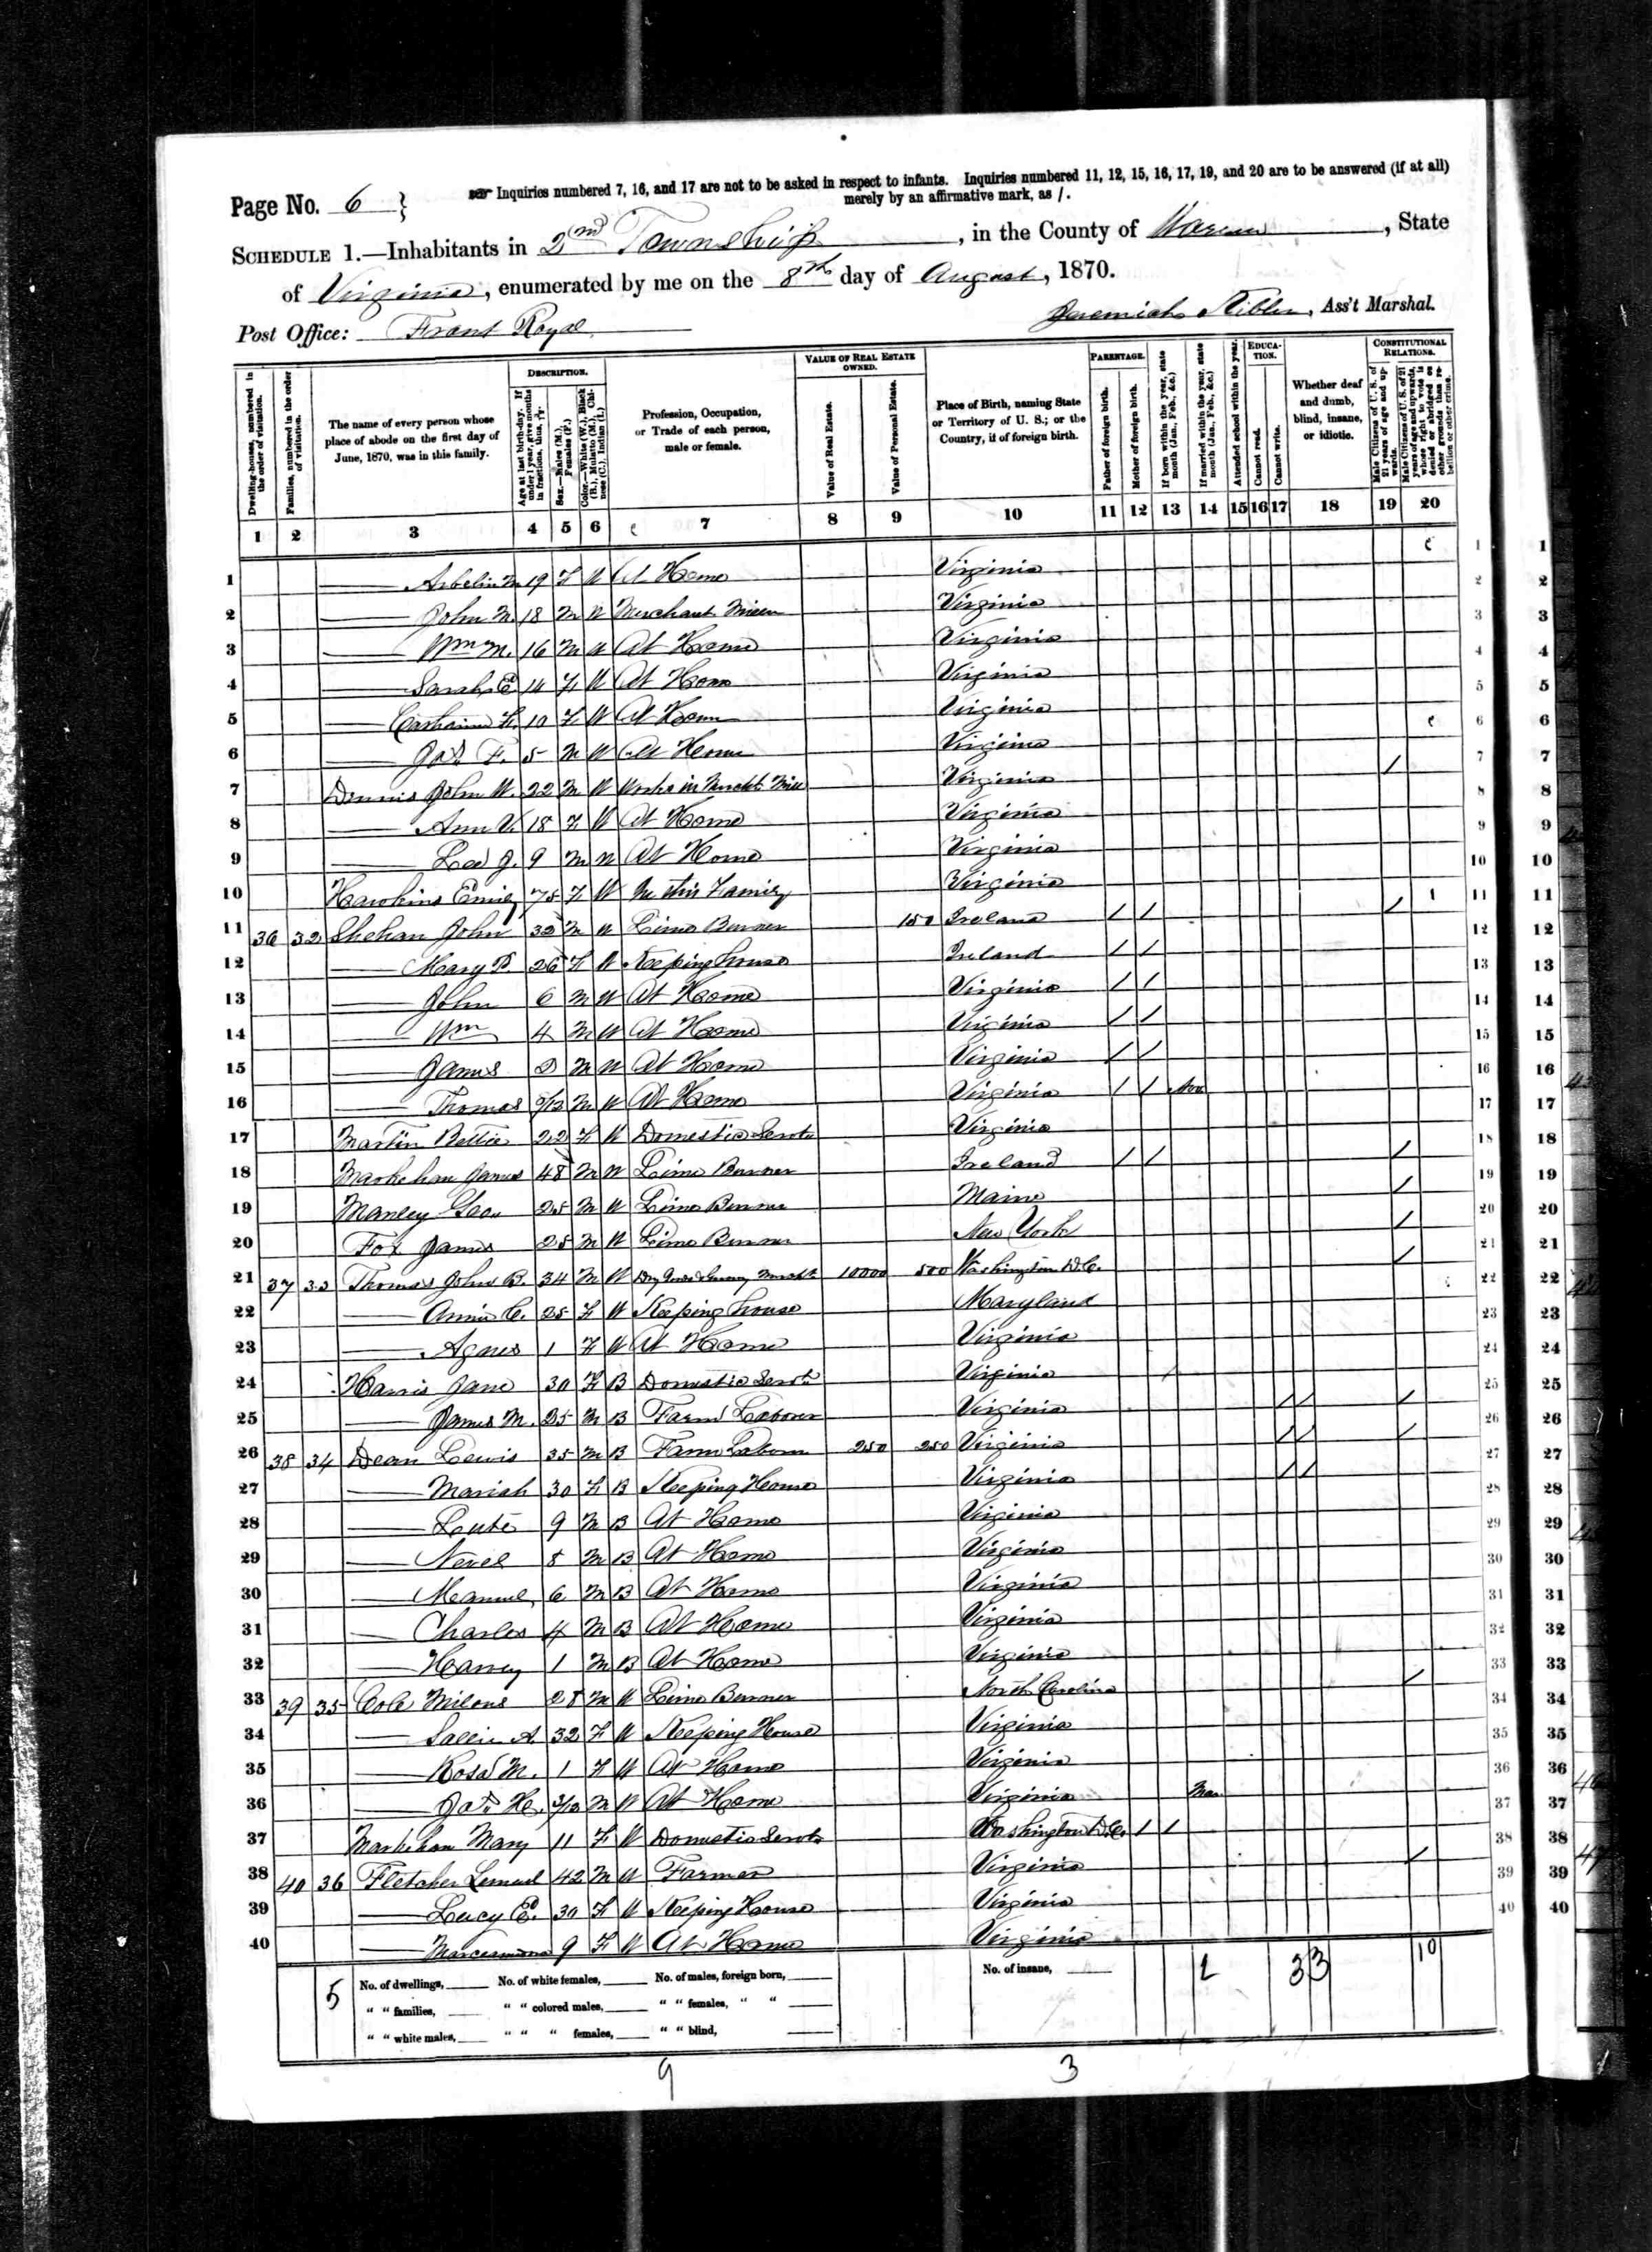 Page No. 6 }
Inquiries numbered 7, 16, and 17 are not to be asked in respect to infants. Inquiries numbered 11, 12, 15, 16, 17, 19, and 20 are to be answered (if at all)
merely by an affirmative mark, as /.
SCHEDULE 1.—Inhabitants in 2nd Township, in the County of Warren, State
of Virginia, enumerated by me on the 8th day of August, 1870.
Post Office: Front Royal
Jeremiah, Ass't Marshal.
Dwelling-houses, numbered in the order of visitation.
Families, numbered in the order of visitation.
The name of every person whose place of abode on the first day of June, 1870, was in this family.
DESCRIPTION.
Age at last birth-day. If under 1 year, give months in fractions, thus, 3/12.
Sex.—Males (M.), Females (F.)
Color.—White (W.), Black (B.), Mulatto (M.), Chinese (C.), Indian (I.)
Profession, Occupation, or Trade of each person, male or female.
VALUE OF REAL ESTATE OWNED.
Value of Real Estate.
Value of Personal Estate.
Place of Birth, naming State or Territory of U. S.; or the Country, if of foreign birth.
PARENTAGE.
Father of foreign birth.
Mother of foreign birth.
If born within the year, state month (Jan., Feb., &c.)
If married within the year, state month (Jan., Feb., &c.)
EDUCATION.
Attended school within the year.
Cannot read.
Cannot write.
Whether deaf and dumb, blind, insane, or idiotic.
CONSTITUTIONAL RELATIONS.
Male Citizens of U. S. of 21 years of age and upwards.
Male Citizens of U. S. of 21 years of age and upwards, whose right to vote is denied or abridged on other grounds than rebellion or other crime.
1 2 3 4 5 6 7 8 9 10 11 12 13 14 15 16 17 18 19 20
1 —— 19 F W At Home Virginia 1
2 —— John M. 18 M W Merchant Virginia 2
3 —— Wm M. 16 M W At Home Virginia 3
4 —— Sarah E 14 F W At Home Virginia 4
5 —— 10 F W At Home Virginia 5
6 —— Jas F. 5 M W At Home Virginia 6
7 Dennis John W. 22 M W Works in Mercht Mill Virginia / 7
8 —— Ann V. 18 F W At Home Virginia 8
9 —— Lee J. 9 M W At Home Virginia 9
10 Hawkins Emily 75 F W Virginia 10
11 36 32 Shehan John 32 M W Lime Burner 150 Ireland / / / 11
12 —— Mary 26 F W Keeping house Ireland / / 12
13 —— John 6 M W At Home Virginia / / 13
14 —— Wm 4 M W At Home Virginia / / 14
15 —— James 2 M W At Home Virginia / / 15
16 —— Thomas M W At Home Virginia / / Nov 16
17 Martin Bettie 22 F W Domestic Servt Virginia 17
18 James 48 M W Lime Burner Ireland / / / 18
19 Manley Geo. 25 M W Lime Burner Maine / 19
20 Fox James 25 M W Lime Burner New York / 20
21 37 33 Thomas John B. 34 M W Dry Goods & Grocery Mercht 10000 500 Washington D.C. / 21
22 —— Annie C. 25 F W Keeping house Maryland 22
23 —— Agnes 1 F W At Home Virginia 23
24 Harris Jane 30 F B Domestic Servt Virginia / 24
25 —— James M. 25 M B Farm Laborer Virginia / / / 25
26 38 34 Dean Lewis 35 M B Farm Laborer 250 250 Virginia / / / 26
27 —— Mariah 30 F B Keeping House Virginia / / 27
28 —— 9 M B At Home Virginia 28
29 —— 8 M B At Home Virginia 29
30 —— Manuel 6 M B At Home Virginia 30
31 —— Charles 4 M B At Home Virginia 31
32 —— Harvey 1 M B At Home Virginia 32
33 39 35 Cole 28 M W Lime Burner North Carolina / 33
34 —— Sallie A. 32 F W Keeping House Virginia 34
35 —— Rosa M. 1 F W At Home Virginia 35
36 —— Jas. H. 3/12 M W At Home Virginia Mar 36
37 Mary 11 F W Domestic Servt Washington D.C. / / 37
38 40 36 Fletcher Lemuel 42 M W Farmer Virginia / 38
39 —— Lucy E. 30 F W Keeping House Virginia 39
40 —— 9 F W At Home Virginia 40
5 No. of dwellings, ____ No. of white females, ____ No. of males, foreign born, ____ No. of insane, ____ 2 3 3 10
" " families, ____ " " colored males, ____ " " females, " " ____
" " white males, ____ " " " females, ____ " " blind, ____
9 3